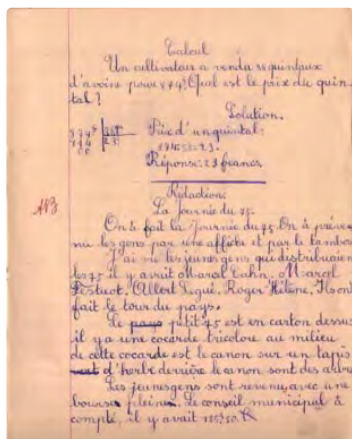 Calcul
Un cultivateur a vendu 38 quintaux
d'avoine pour 874f. Quel est le prix du quin
tal ?
Solution.
Prix d'un quintal:
874:38=23.
Réponse: 23 francs.
Rédaction.
La Journée du 75.
On a fait la Journée du 75. On à préve
nu les gens par une affiche et par le tambour
J'ai vu les jeunes gens qui distribuaient
les 75 il y avait Marcel Cahn, Marcel
Albert Legué, Roger Hélène, Ils ont
fait le tour du pays.
Le pays petit 75 est en carton dessus
il y a une cocarde tricolore au milieu
de cette cocarde est le canon sur un tapis
d'herbe derrière le canon sont des arbres
Les jeunes gens sont revenu, avec une
bourse pleine. Le conseil municipal à
compté, il y avait